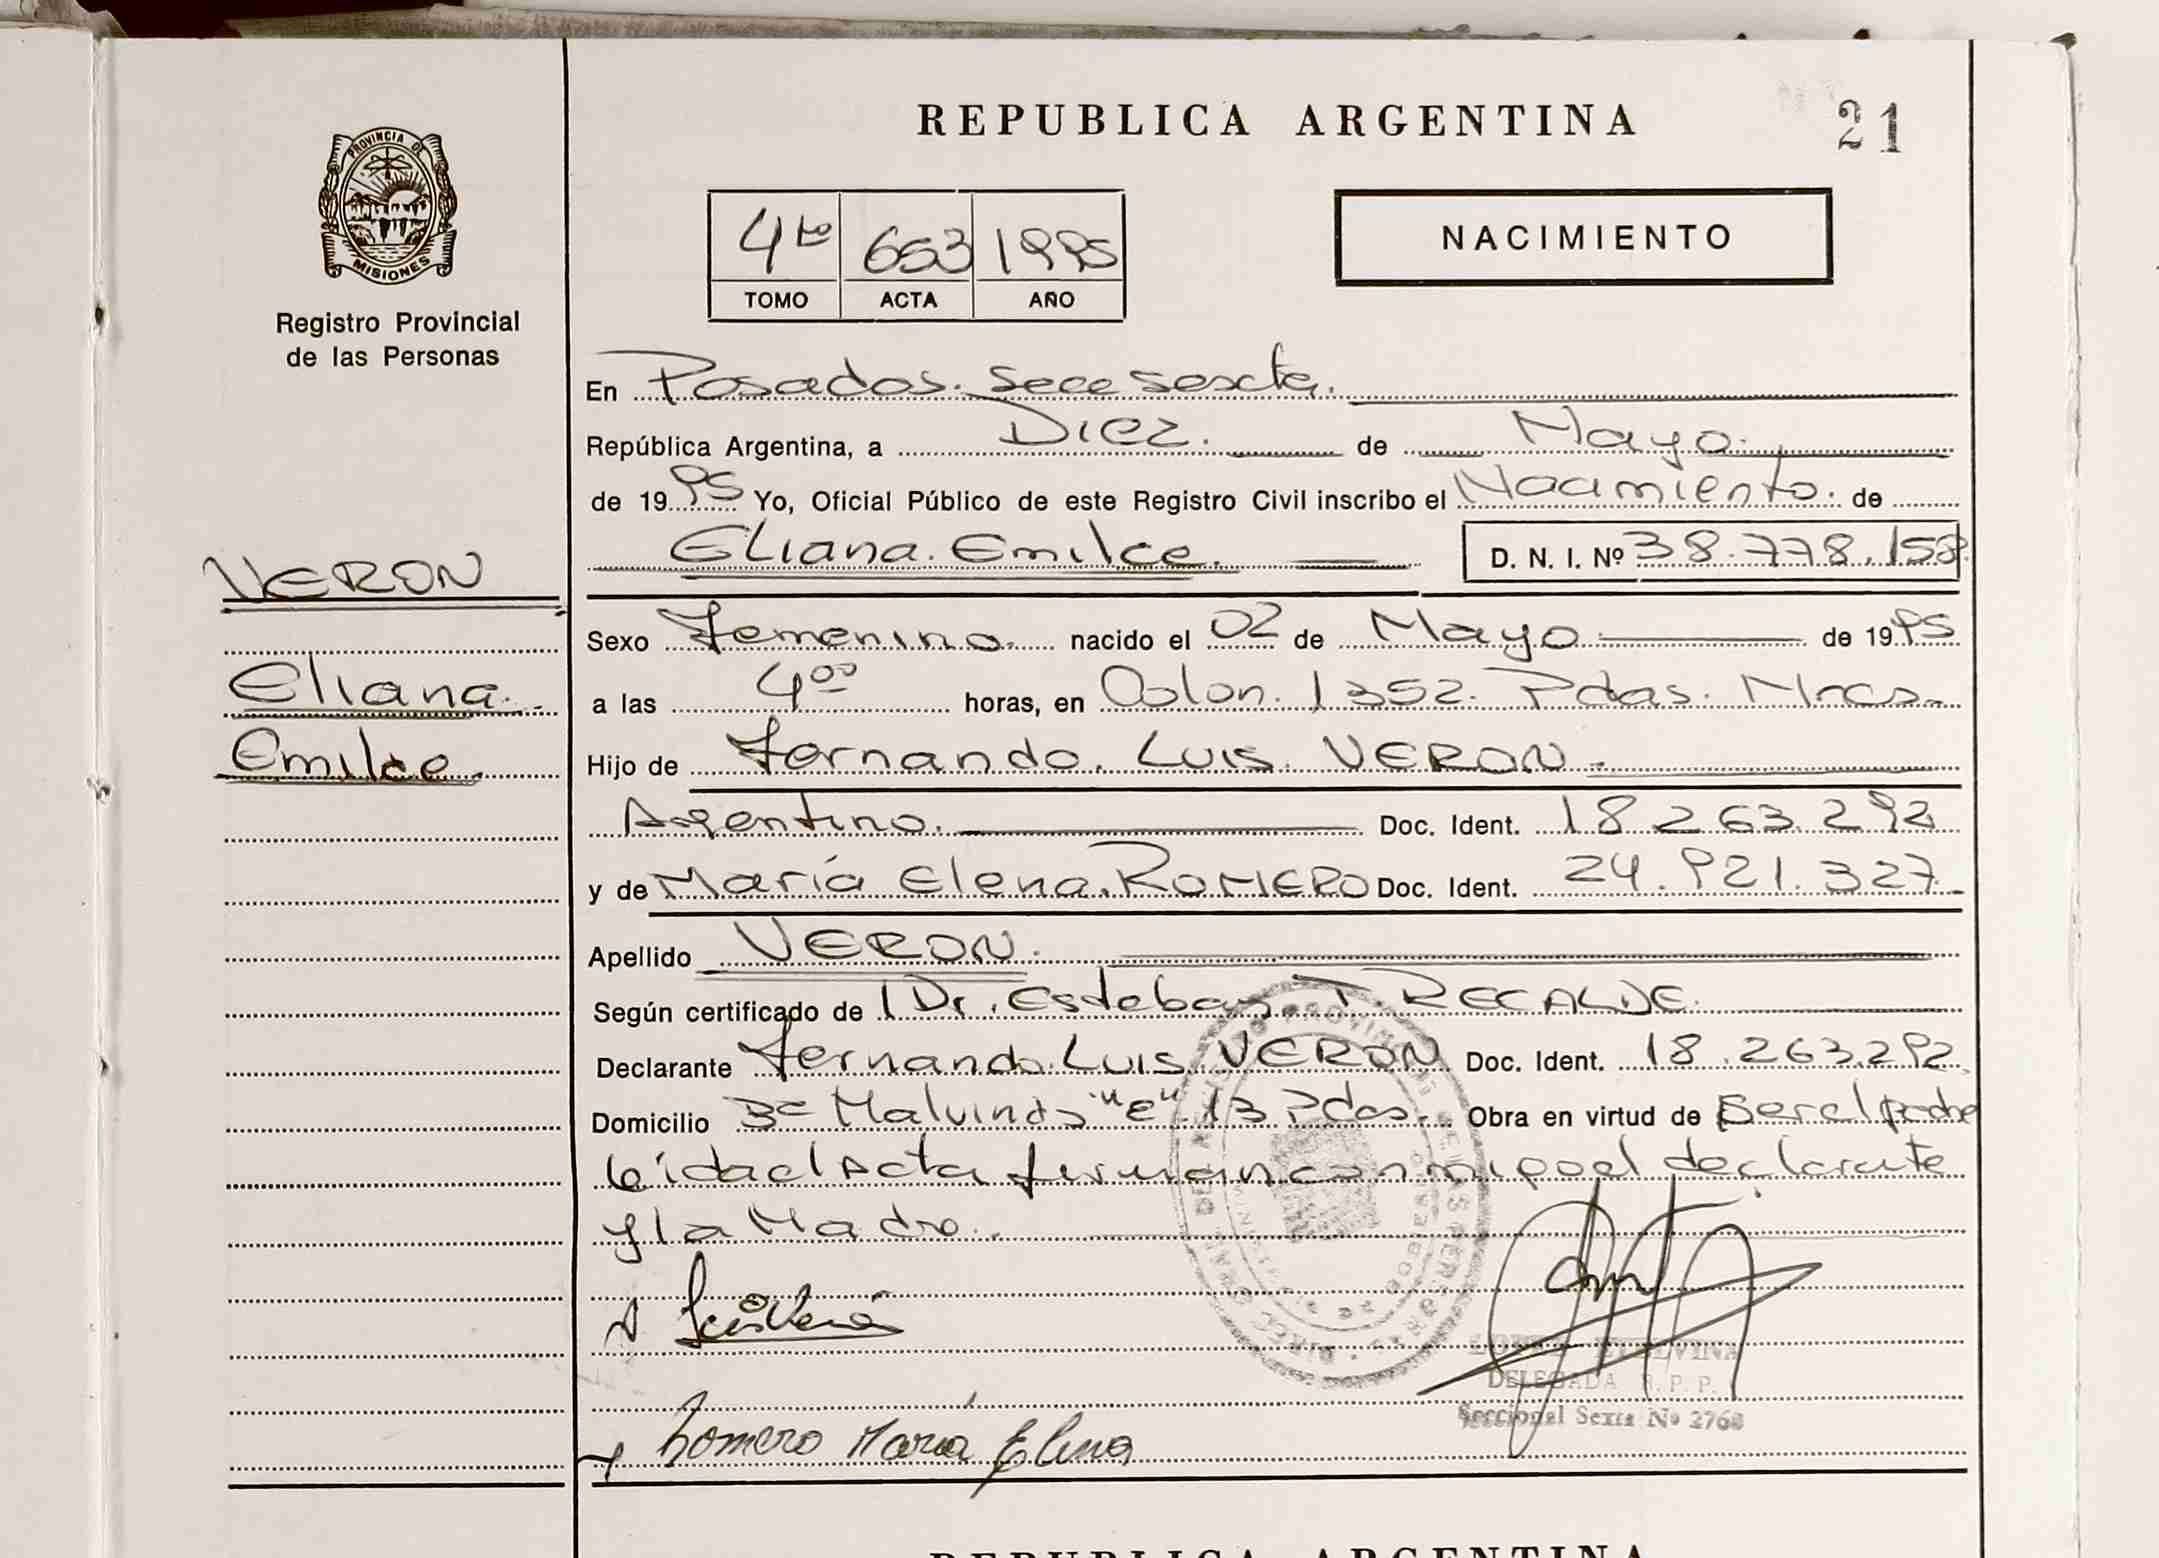 REPUBLICA ARGENTINA
21
PROVINCIA DE
MISIONES
Registro Provincial
de las Personas
4to 653 1995
TOMO ACTA AÑO
NACIMIENTO
En Posadas. Secc Sexcta.
República Argentina, a Diez. de Mayo.
de 1995 Yo, Oficial Público de este Registro Civil inscribo el Nacimiento. de
Eliana. Emilce. D. N. I. Nº 38.778.158
VERON
Eliana.
Emilce.
Sexo Femenino. nacido el 02 de Mayo de 1995
a las 4 00 horas, en Colon. 1352. Pdas. Mnes.
Hijo de Fernando. Luis. VERON.
Argentino. Doc. Ident. 18.263.292
y de María Elena. ROMERO Doc. Ident. 24.921.327
Apellido VERON.
Según certificado de Dr. Esteban T. RECALDE.
Declarante Fernando. Luis. VERON Doc. Ident. 18.263.292
Domicilio Malvinas "E" 13 Pdas. Obra en virtud de Ser el padre
Leida el Acta firman con migo el declarante
y la Madre.
Romero María Elena
DELEGADA R. P. P.
Seccional Sexta Nº 2768
REPUBLICA ARGENTINA